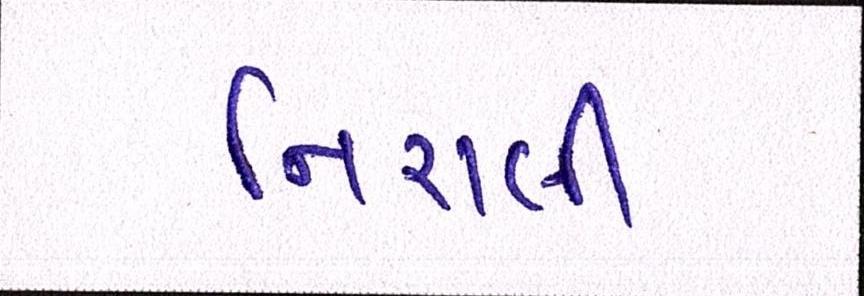 નિરાલી